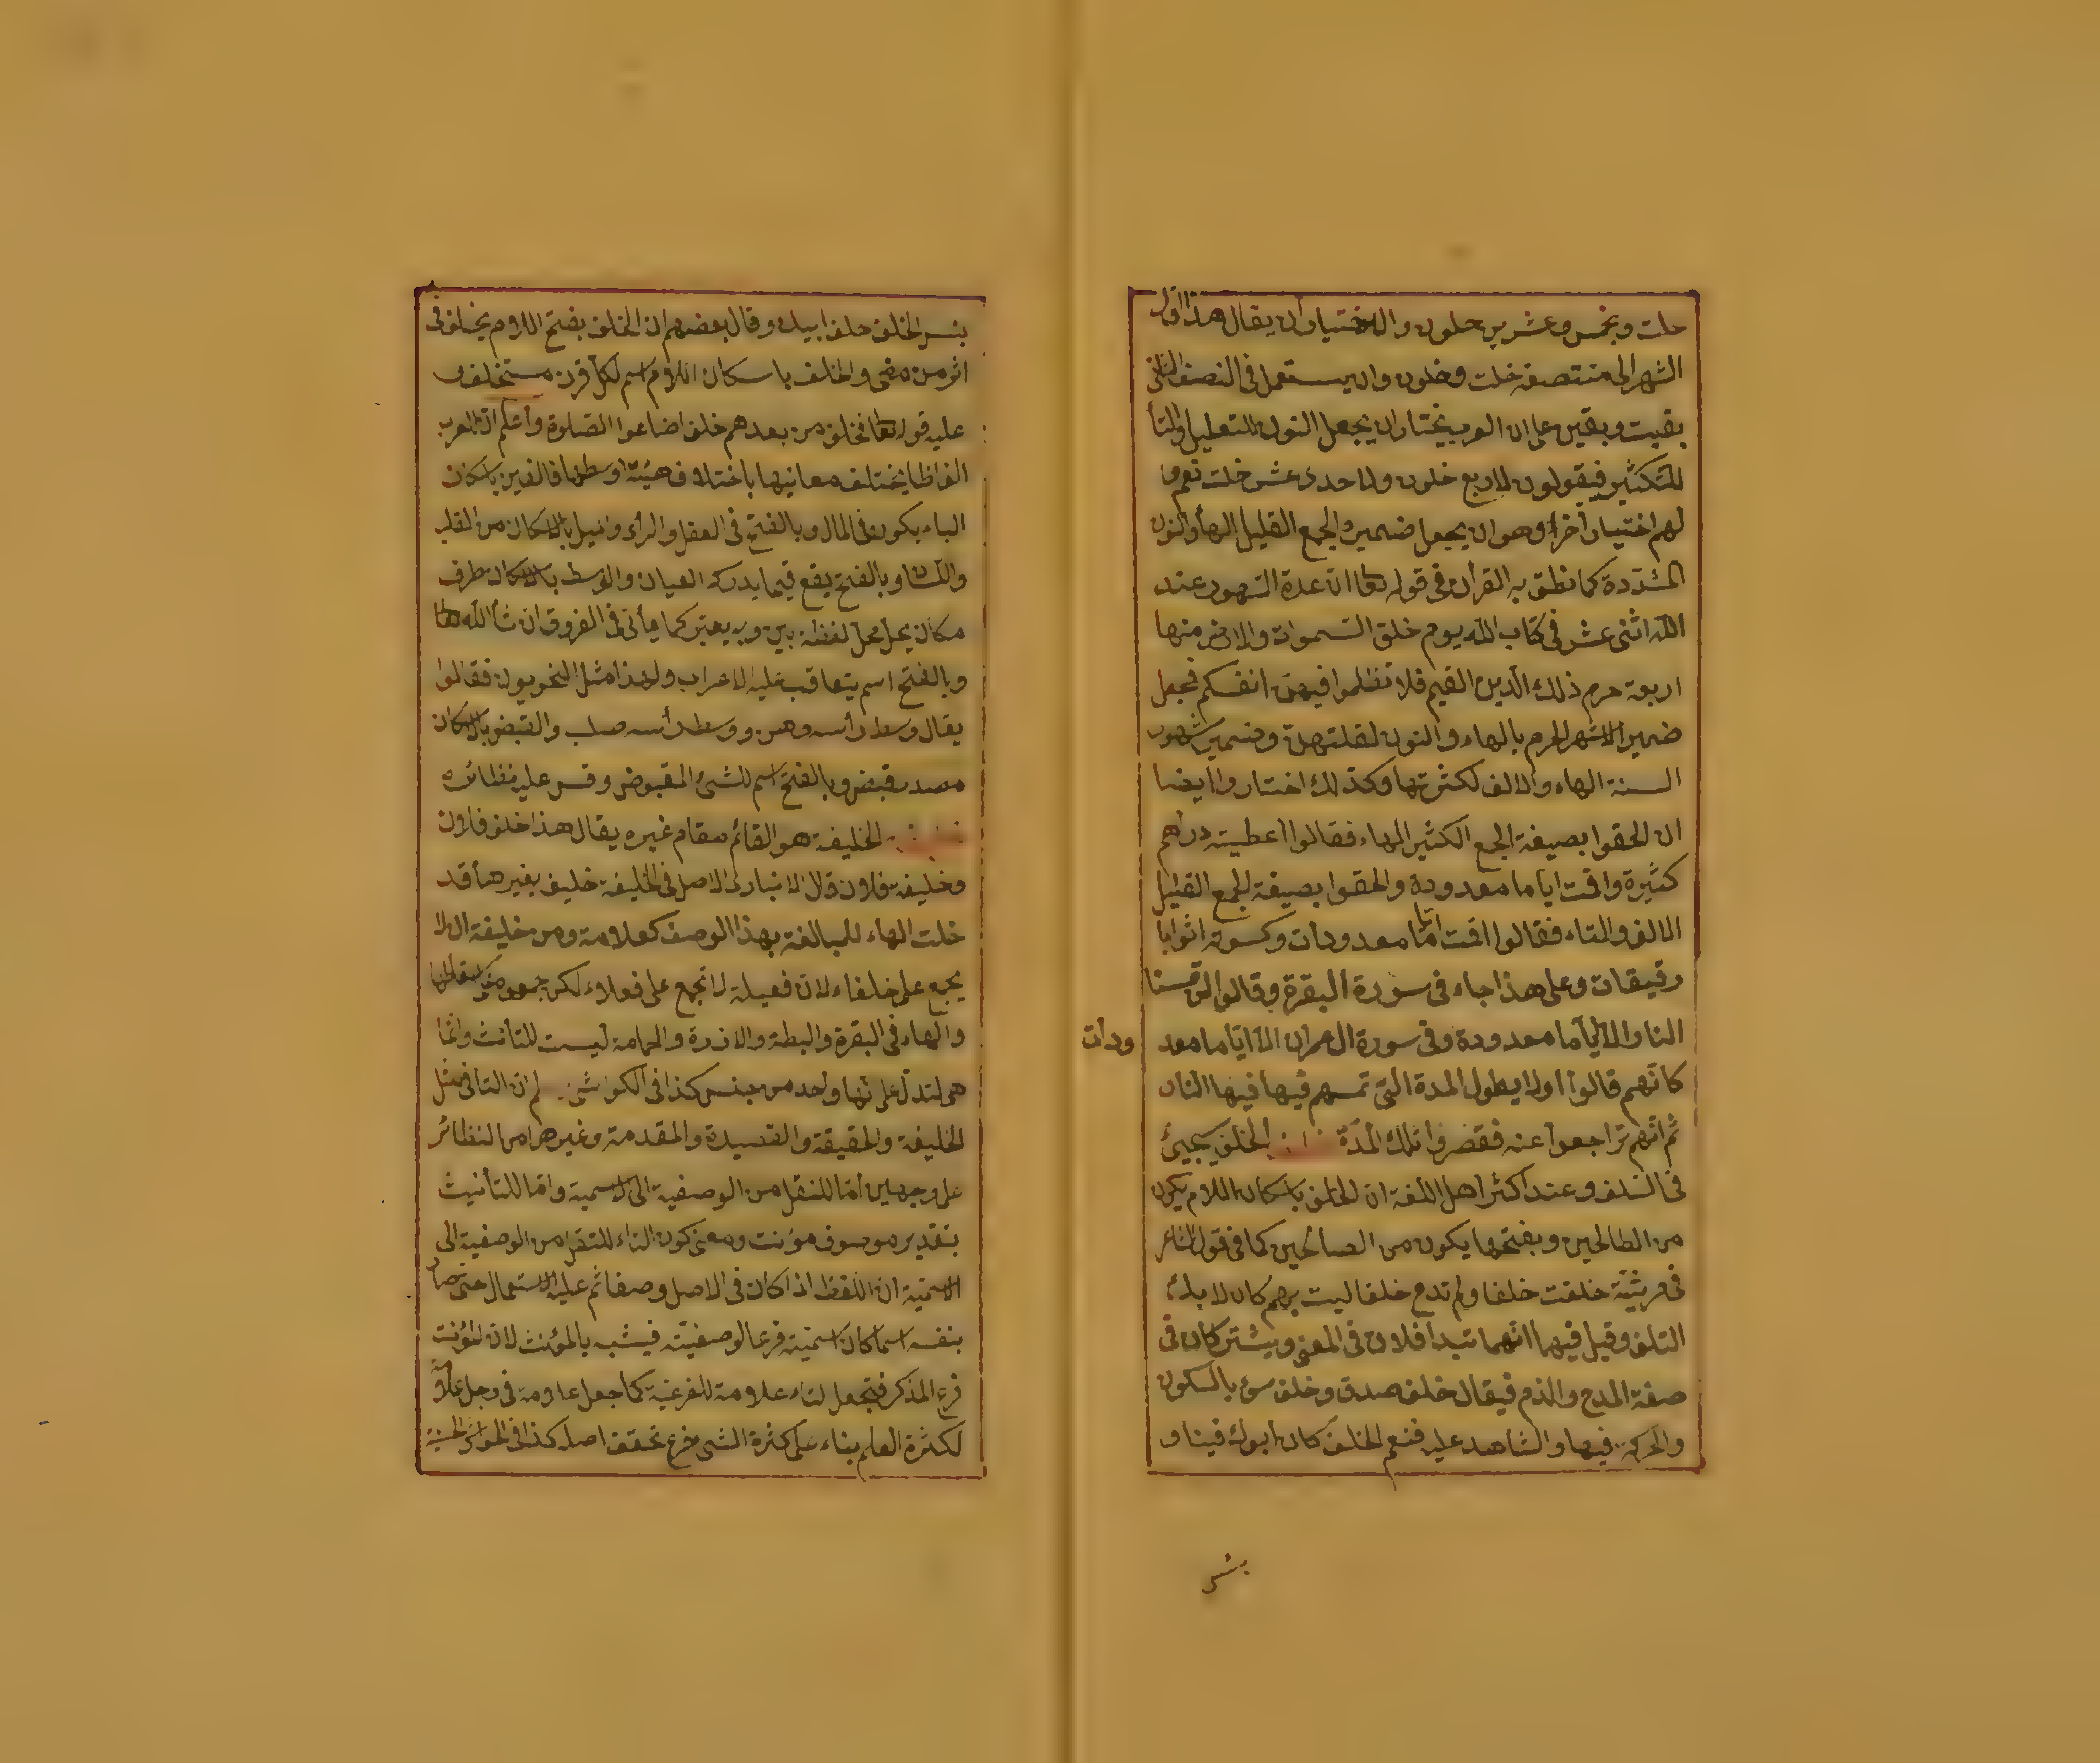 خلت وبخمس وعشرين خلون والاختيار أن يقال هذا اول
الشهر الى منتصفه خلت وخلون وان يستعمل فى النصف الثانى
بقيت وبقين على ان العرب يختار ان يجعل النون للتعليل والتأ
للتكثير فيقولون لاربع خلون ولاحدى عشر خلت نعم وا
لهم اختيار آخر وهو ان يجعل ضمير الجمع القليل الهأ والنون
المشددة كما نطق به القرأن فى قوله تعا ان عدة الشهور عند
الله اثنى عشر فى كتاب الله يوم خلق السموات والارض منها
اربعة حرم ذلك الدين القيم فلا تظلموا فيهن انفسكم فجعل
ضمير الاشهر الحرم بالهاء والنون لقلتهن وضمير شهور
السنة الهاء والالف لكثرتها وكذلك اختاروا ايضا
ان الحقوا بصيغة الجمع الكثير الهاء فقالوا اعطيته دراهم
كثيرة واقمت اياما معدودة والحقوا بصيغة للجمع القليل
الالف والتاء فقالوا اقمت اياما معدودات وكسوته اثوابا
رقيقات وعلى هذا جاء فى سورة البقرة وقالوا لن تمسنا
النار الا اياما معدودة وفى سورة ال عمران الا اياما معد
ودات
كانهم قالوا اولا يطول المدة التى تمسهم فيها فيها النار
ثم انهم تراجعوا عنه فقصروا تلك المدة الخلف يجيئ
فى السلف وعند اكثر اهل اللغة ان الخلف باسكان اللام يكون
من الطالحين وبفتحها يكون من الصالحين كما فى قول الشاعر
فى مرثيته خلفت خلفا ولم تدع خلفا ليت بهم كان لا بك
التلف وقيل فيهما انهما يتداخلان فى المعنى ويشتركان فى
صفة المدح والذم فيقال خلف صدق وخلف سوء بالسكون
والحركة فيها والشاهد عليه فنعم الخلف كان أبوك فينا و
بئس
بئس الخلف خلف ابيك وقال بعضهم ان الخلف بفتح اللام يخلف فى
اثر من مضى والخلف باسكان اللام اسم لكل قرن مستخلف و
عليه قوله تعا فخلف من بعدهم خلف اضاعوا الصلوة وأعلم ان العرب
الفاظا يختلف معانيها باختلاف هيئة اوسطها فالغبن باسكان
الباء يكون فى المال وبالفتح فى العقل والرأى والميل بالاسكان من القلب
واللسان وبالفتح يقع فيما يدركه العيان والوسط بالاسكان ظرف
مكان يحل محل لفظة بين وبه يعتبر كما يأتى فى الفروق ان شأ الله تعا
وبالفتح اسم يتعاقب عليه الاعراب ولهذا مثل النحويون فقالوا
يقال وسط رأسه دهن ووسط رأسه صلب والقبض بالاسكان
مصدر قبض وبالفتح اسم للشئ المقبوض وقس عليه نظائره
الخليفة هو القائم مقام غيره يقال هذا خلف فلان
وخليفة فلان قال الانبارى الاصل فى الخليفة خليف بغير هأ فد
خلت الهاء للمبالغة بهذا الوصف كعلامة ومن خليفة ان لا
يجمع على خلفاء لان فعيلة لا تجمع على فعلاء لكن جمعوه
والهاء فى البقرة والبطة والاذرة والحمامة ليست للتأنث وانما
هى لتدل على انها واحد من جنس كذا فى الكواشى ثم ان التا فى مثل
الخليفة والحقيقة والقصيدة والمقدمة وغيرها من النظائر
على وجهين اما للنقل من الوصفية الى الاسمية واما للتأنيث
بتقدير موصوف مؤنث ومعنى كون التاء للنقل من الوصفية الى
الاسمية ان اللفظ اذا كان فى الاصل وصفا ثم غلب الاستعمال حتى صار
بنفسه اسما كان اسميته فرعا لوصفيته فيشبه بالمؤنث لان المؤنث
فرع المذكر فتجعل التاء علامة للفرعية كما جعل علامة فى رجل علامة
لكثرة العلم بناء على كثرة الشئ فرع تحقق اصله كذا فى الحواشى الحسنية